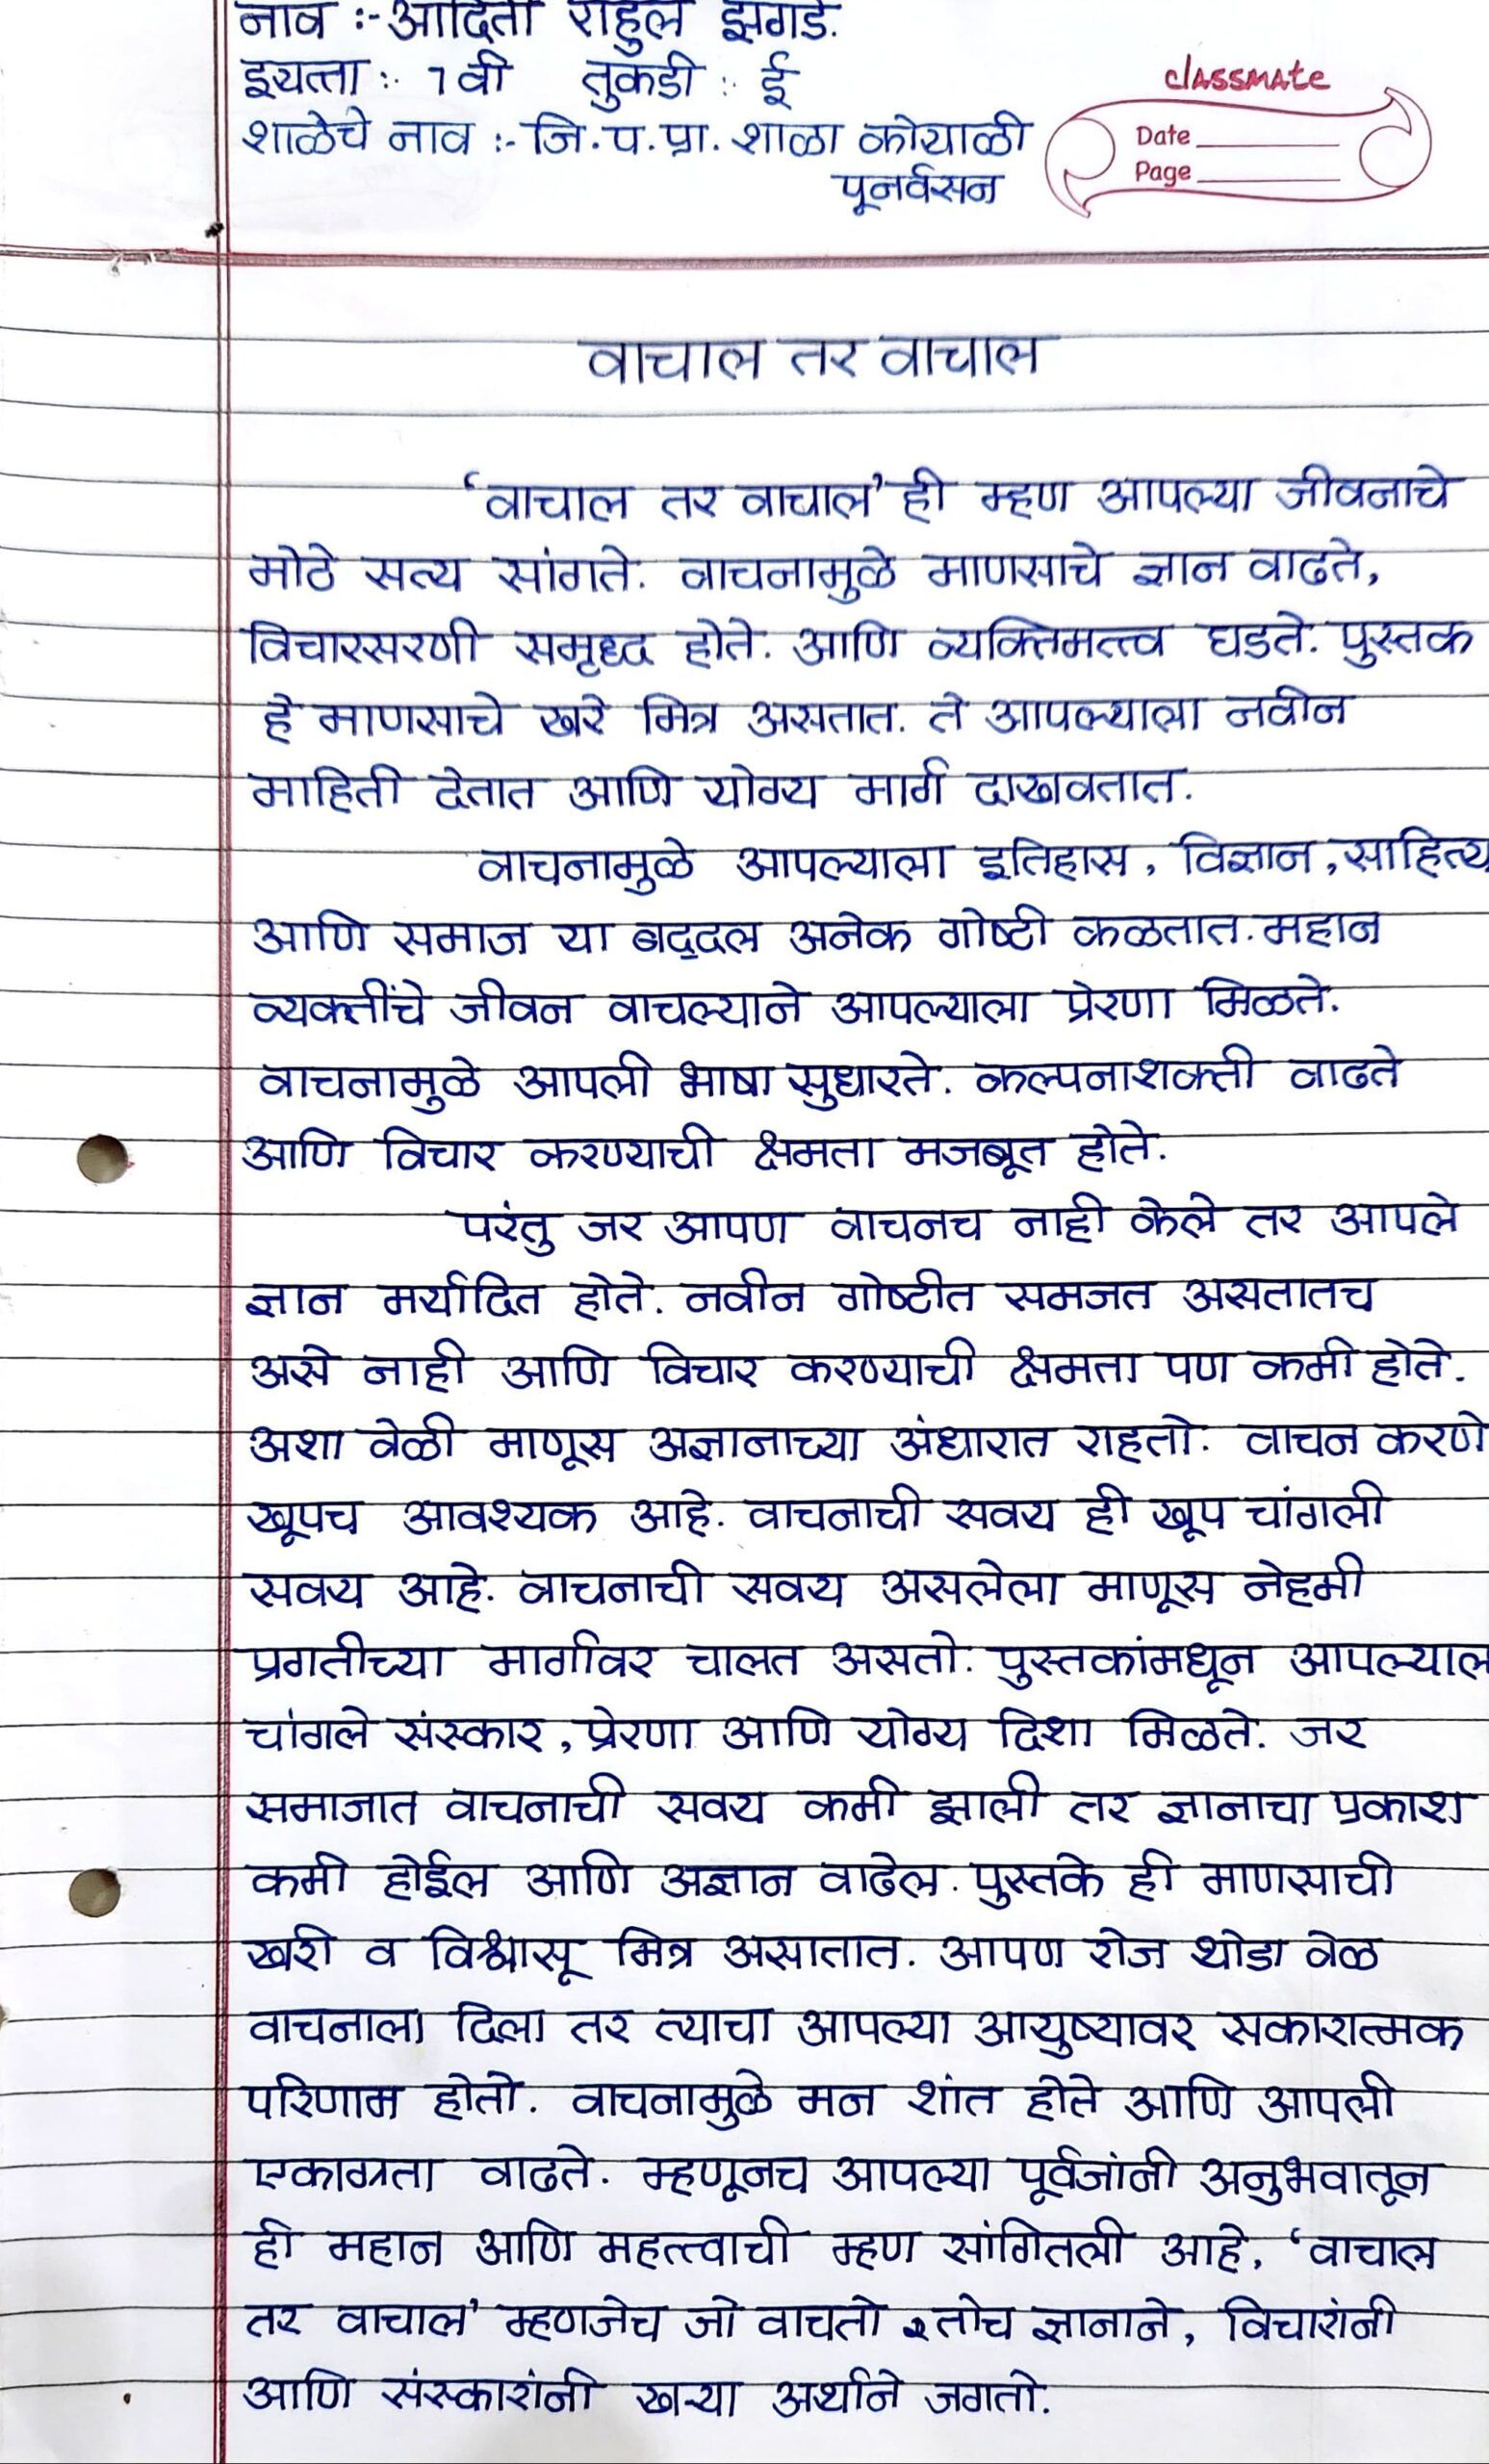 नाव :- आदिती राहुल झगडे.
इयत्ता :- 7 वी तुकडी :- ई
classmate
शाळेचे नाव :- जि.प.प्रा. शाळा कोयाळी
Date
Page
पूनर्वसन
वाचाल तर वाचाल
'वाचाल तर वाचाल' ही म्हण आपल्या जीवनाचे
मोठे सत्य सांगते. वाचनामुळे माणसाचे ज्ञान वाढते,
विचारसरणी समृध्द होते. आणि व्यक्तिमत्त्व घडते. पुस्तक
हे माणसाचे खरे मित्र असतात. ते आपल्याला नवीन
माहिती देतात आणि योग्य मार्ग दाखवतात.
वाचनामुळे आपल्याला इतिहास, विज्ञान, साहित्य
आणि समाज या बद्दल अनेक गोष्टी कळतात. महान
व्यक्तींचे जीवन वाचल्याने आपल्याला प्रेरणा मिळते.
वाचनामुळे आपली भाषा सुधारते. कल्पनाशक्ती वाढते
आणि विचार करण्याची क्षमता मजबूत होते.
परंतु जर आपण वाचनच नाही केले तर आपले
ज्ञान मर्यादित होते. नवीन गोष्टीत समजत असतातच
असे नाही आणि विचार करण्याची क्षमता पण कमी होते.
अशा वेळी माणूस अज्ञानाच्या अंधारात राहतो. वाचन करणे
खूपच आवश्यक आहे. वाचनाची सवय ही खूप चांगली
सवय आहे. वाचनाची सवय असलेला माणूस नेहमी
प्रगतीच्या मार्गावर चालत असतो. पुस्तकांमधून आपल्याल
चांगले संस्कार, प्रेरणा आणि योग्य दिशा मिळते. जर
समाजात वाचनाची सवय कमी झाली तर ज्ञानाचा प्रकाश
कमी होईल आणि अज्ञान वाढेल. पुस्तके ही माणसाची
खरी व विश्वासू मित्र असातात. आपण रोज थोडा वेळ
वाचनाला दिला तर त्याचा आपल्या आयुष्यावर सकारात्मक
परिणाम होतो. वाचनामुळे मन शांत होते आणि आपली
एकाग्रता वाढते. म्हणूनच आपल्या पूर्वजांनी अनुभवातून
ही महान आणि महत्त्वाची म्हण सांगितली आहे, 'वाचाल
तर वाचाल' म्हणजेच जो वाचतो तोच ज्ञानाने, विचारांनी
आणि संस्कारांनी खऱ्या अर्थाने जगतो.